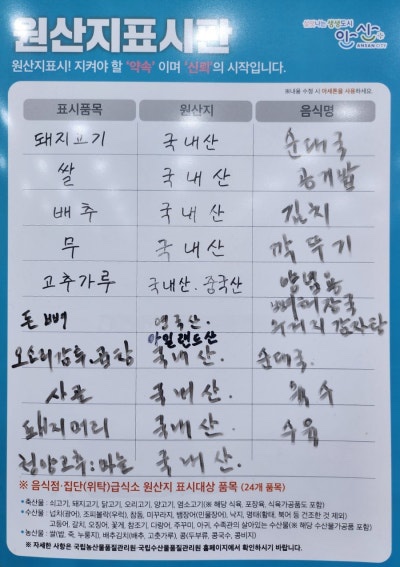 원산지표시판
생생도시
안산시
ANSAN CITY
원산지표시! 지켜야 할 '약속' 이며 '신뢰'의 시작입니다.
※내용 수정 시 아세톤을 사용하세요.
표시품목 원산지 음식명
돼지고기 국내산 순대국
쌀 국내산 공기밥
배추 국내산 김치
무 국내산 깍뚜기
고추가루 국내산. 중국산 양념용
돈뼈 영국산. 뼈해장국
아일랜드산 우거지 감자탕
오소리감투.곱창 국내산. 순대국.
사골 국내산. 육수
돼지머리 국내산. 수육
청양고추:마늘 국내산.
※ 음식점·집단(위탁)급식소 원산지 표시대상 품목 (24개 품목)
•축산물 : 쇠고기, 돼지고기, 닭고기, 오리고기, 양고기, 염소고기(※ 해당 식육, 포장육, 식육가공품도 포함)
•수산물 : 넙치(광어), 조피볼락(우럭), 참돔, 미꾸라지, 뱀장어(민물장어), 낙지, 명태(황태, 북어 등 건조한 것 제외)
고등어, 갈치, 오징어, 꽃게, 참조기, 다랑어, 주꾸미, 아귀, 수족관의 살아있는 수산물(※ 해당 수산물가공품 포함)
•농산물 : 쌀(밥, 죽, 누룽지), 배추김치(배추, 고춧가루), 콩(두부류, 콩국수, 콩비지)
※ 자세한 사항은 국립농산물품질관리원·국립수산물품질관리원 홈페이지에서 확인하시기 바랍니다.